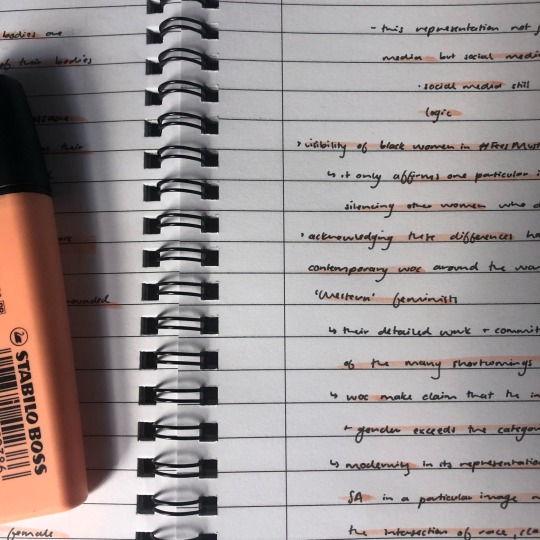 bodies are
of their bodies
their
female
STABILO BOSS
- this representation not
media but social media
· social media still
logic
› visibility of black women in #FeesMust
↳ it only affirms one particular
silencing other women who
· acknowledging these differences
contemporary woc around the
'Western' feminists
↳ their detailed work + commit
of the many shortcomings
↳ woc make claim that the
+ gender exceeds the categor
↳ modernity in its representation
SA in a particular image
the intersection of race, cla